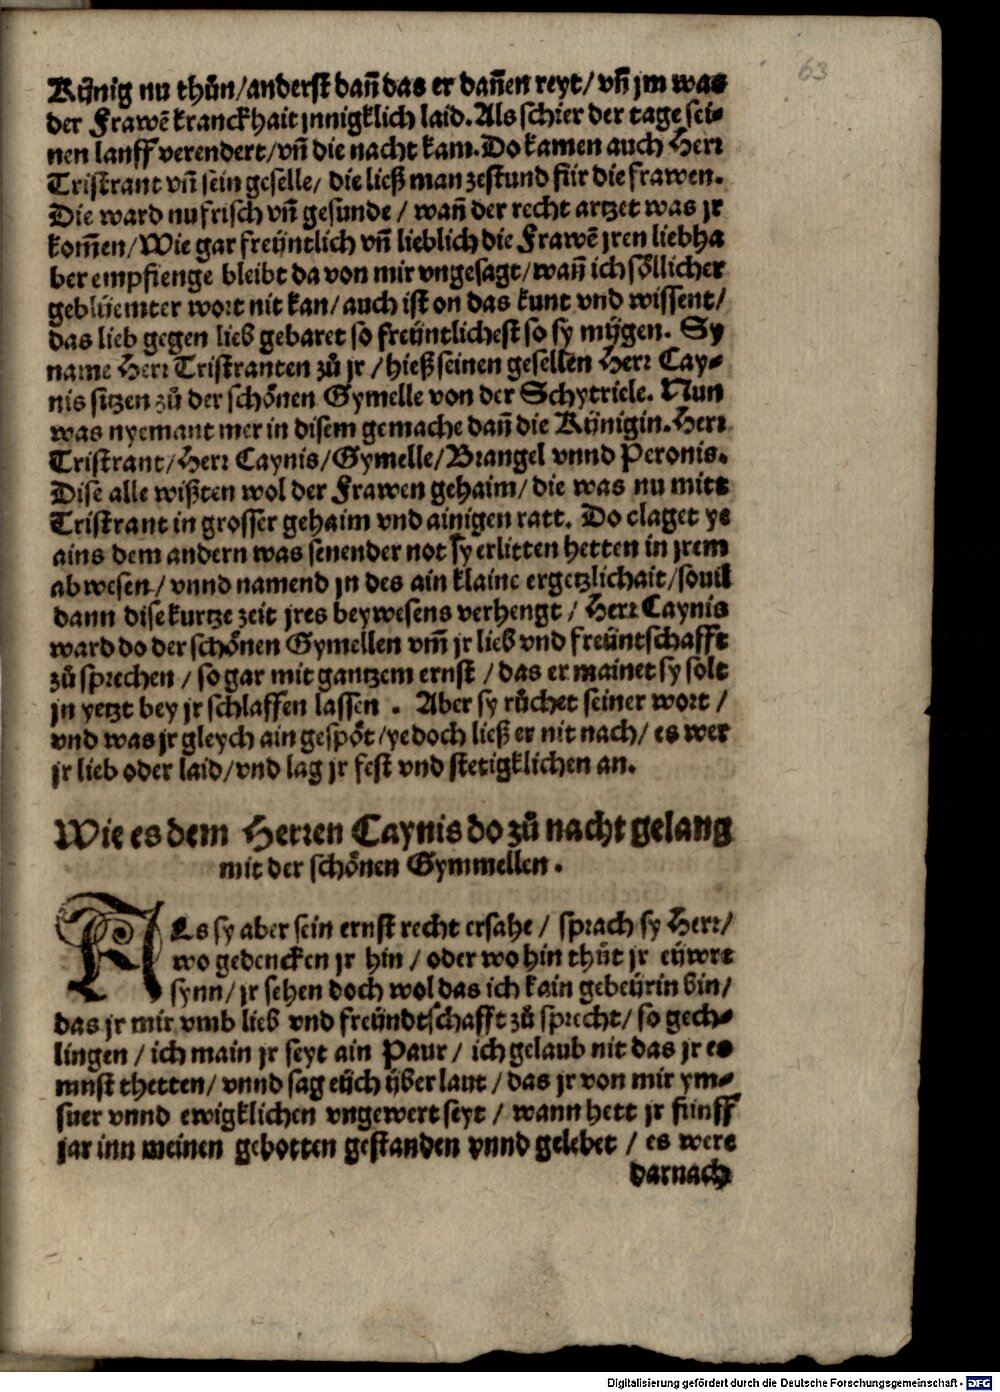 63
Künig nu thůn/anderst dañ das er dañen reyt/ vñ jm was
der Frawē kranckhait jnnigklich laid. Als schier der tage sei⸗
nen lauff verendert/vñ die nacht kam. Do kamen auch Herr
Tristrant vñ sein geselle/ die ließ man zestund für die frawen.
Die ward nu frisch vñ gesunde / wañ der recht artzet was jr
kom̄en/Wie gar freüntlich vñ lieblich die Frawē jren liebha
ber empfienge bleibt da von mir vngesagt/wañ ich söllicher
geblüemter wort nit kan/auch ist on das kunt vnd wissent/
das lieb gegen lieb gebaret so freüntlichest so sy mügen. Sy
name Herr Tristranten zů jr /hieß seinen gesellen Herr Cay⸗
nis sitzen zů der schönen Gymelle von der Schytriele. Nun
was nyemant mer in disem gemache dañ die Künigin. Herr
Tristrant/Herr Caynis/Gymelle/Brangel vnnd Peronis.
Dise alle wißten wol der Frawen gehaim/ die was nu mitt
Tristrant in grosser gehaim vnd ainigen ratt. Do claget ye
ains dem andern was senender not sy erlitten hetten in jrem
abwesen/ vnnd namend jn des ain klaine ergetzlichait/souil
dann dise kurtze zeit jres beywesens verhengt / Herr Caynis
ward do der schönen Gymellen vm̄ jr lieb vnd freüntschafft
zů sprechen / so gar mit gantzem ernst / das er mainet sy solt
jn yetzt bey jr schlaffen lassen . Aber sy růchet seiner wort /
vnd was jr gleych ain gespöt/yedoch ließ er nit nach/ es wer
jr lieb oder laid/vnd lag jr fest vnd stetigklichen an.
Wie es dem Herren Caynis do zů nacht gelang
mit der schönen Gymmellen .
ALs sy aber sein ernst recht ersahe / sprach sy Herr/
wo gedencken jr hin / oder wo hin thüt jr eüwre
synn/ jr sehen doch wol das ich kain gebeürin bin/
das jr mir vmb lieb vnd freündtschafft zů sprecht/ so gech⸗
lingen / ich main jr seyt ain Paur / ich gelaub nit das jr es
munst thetten/ vnnd sag eüch über laut / das jr von mir ym⸗
mer vnnd ewigklichen vngewert seyt / wann hett jr fünff
jar inn meinen gebotten gestanden vnnd gelebet / es were
darnach
Digitalisierung gefördert durch die Deutsche Forschungsgemeinschaft - DFG